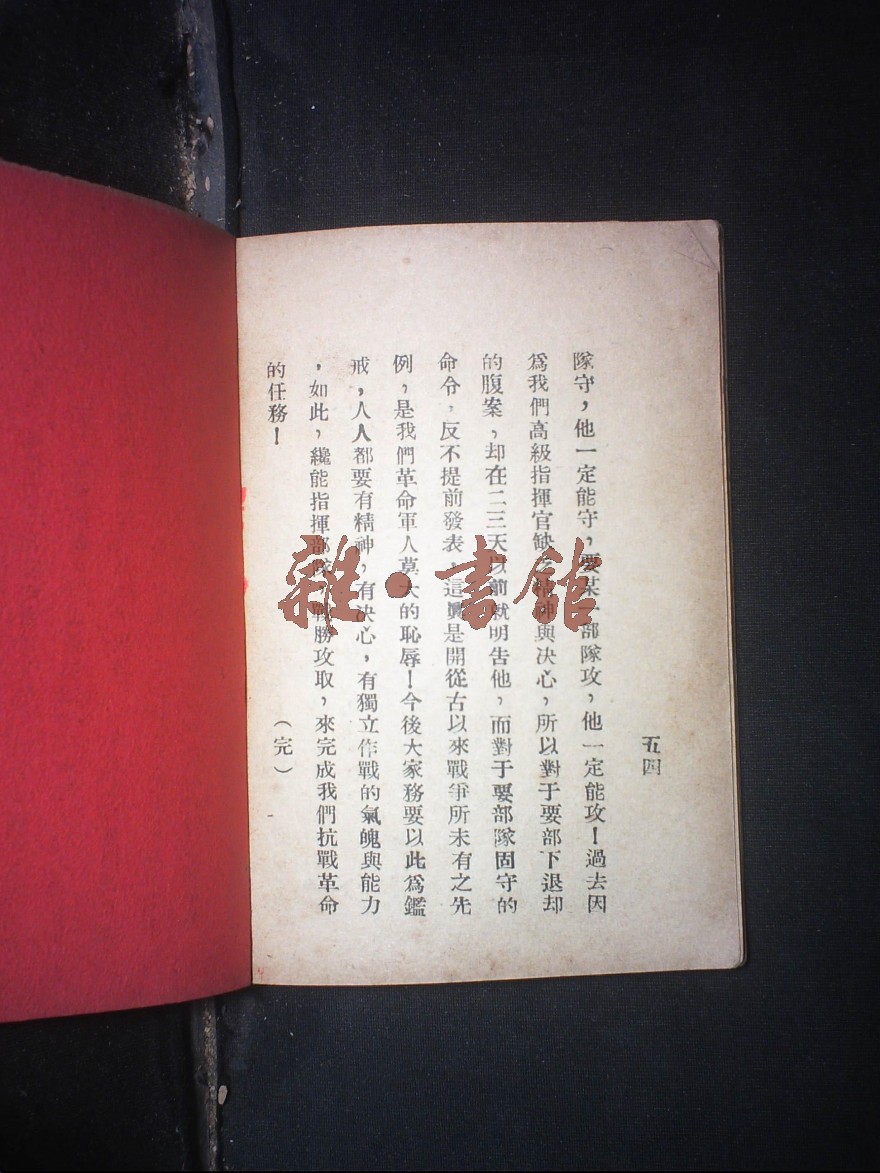 五四
隊守，他一定能守，要某一部隊攻，他一定能攻！過去因
爲我們高級指揮官缺乏精神與决心，所以對于要部下退却
的腹案，却在二三天以前就明告他，而對于要部隊固守的
命令，反不提前發表，這眞是開從古以來戰爭所未有之先
例，是我們革命軍人莫大的恥辱！今後大家務要以此爲鑑
戒，人人都要有精神，有决心，有獨立作戰的氣魄與能力
，如此，纔能指揮部隊，戰勝攻取，來完成我們抗戰革命
的任務！
（完）
雜·書館